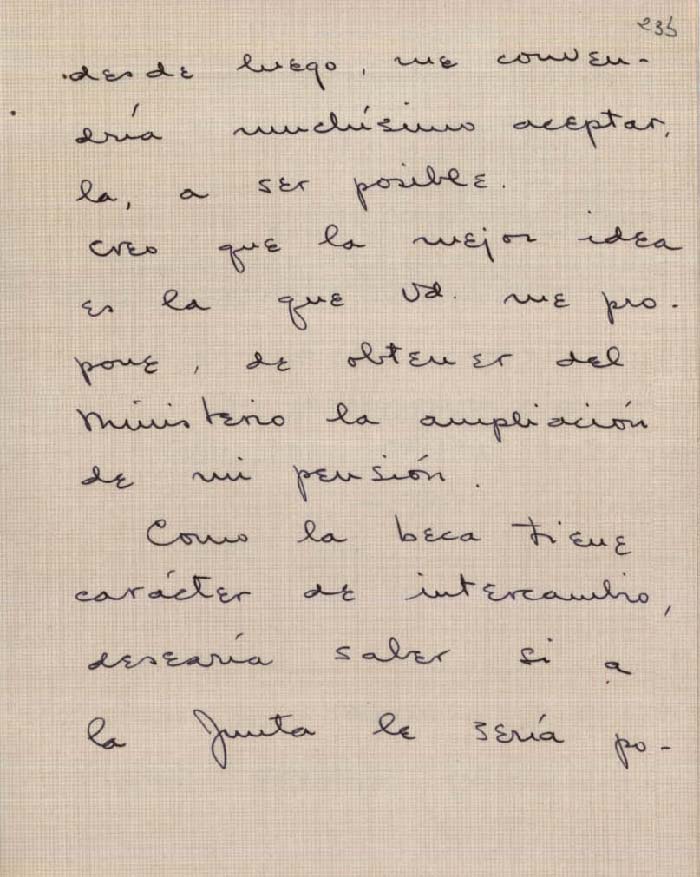 235
desde luego, me conven-
dría muchísimo aceptar,
la, a ser posible.
Creo que la mejor idea
es la que Vd. me pro-
pone, de obtener del
Ministerio la ampliación
de mi pensión.
Como la beca tiene
carácter de intercambio,
desearía saber si a
la Junta le sería po-